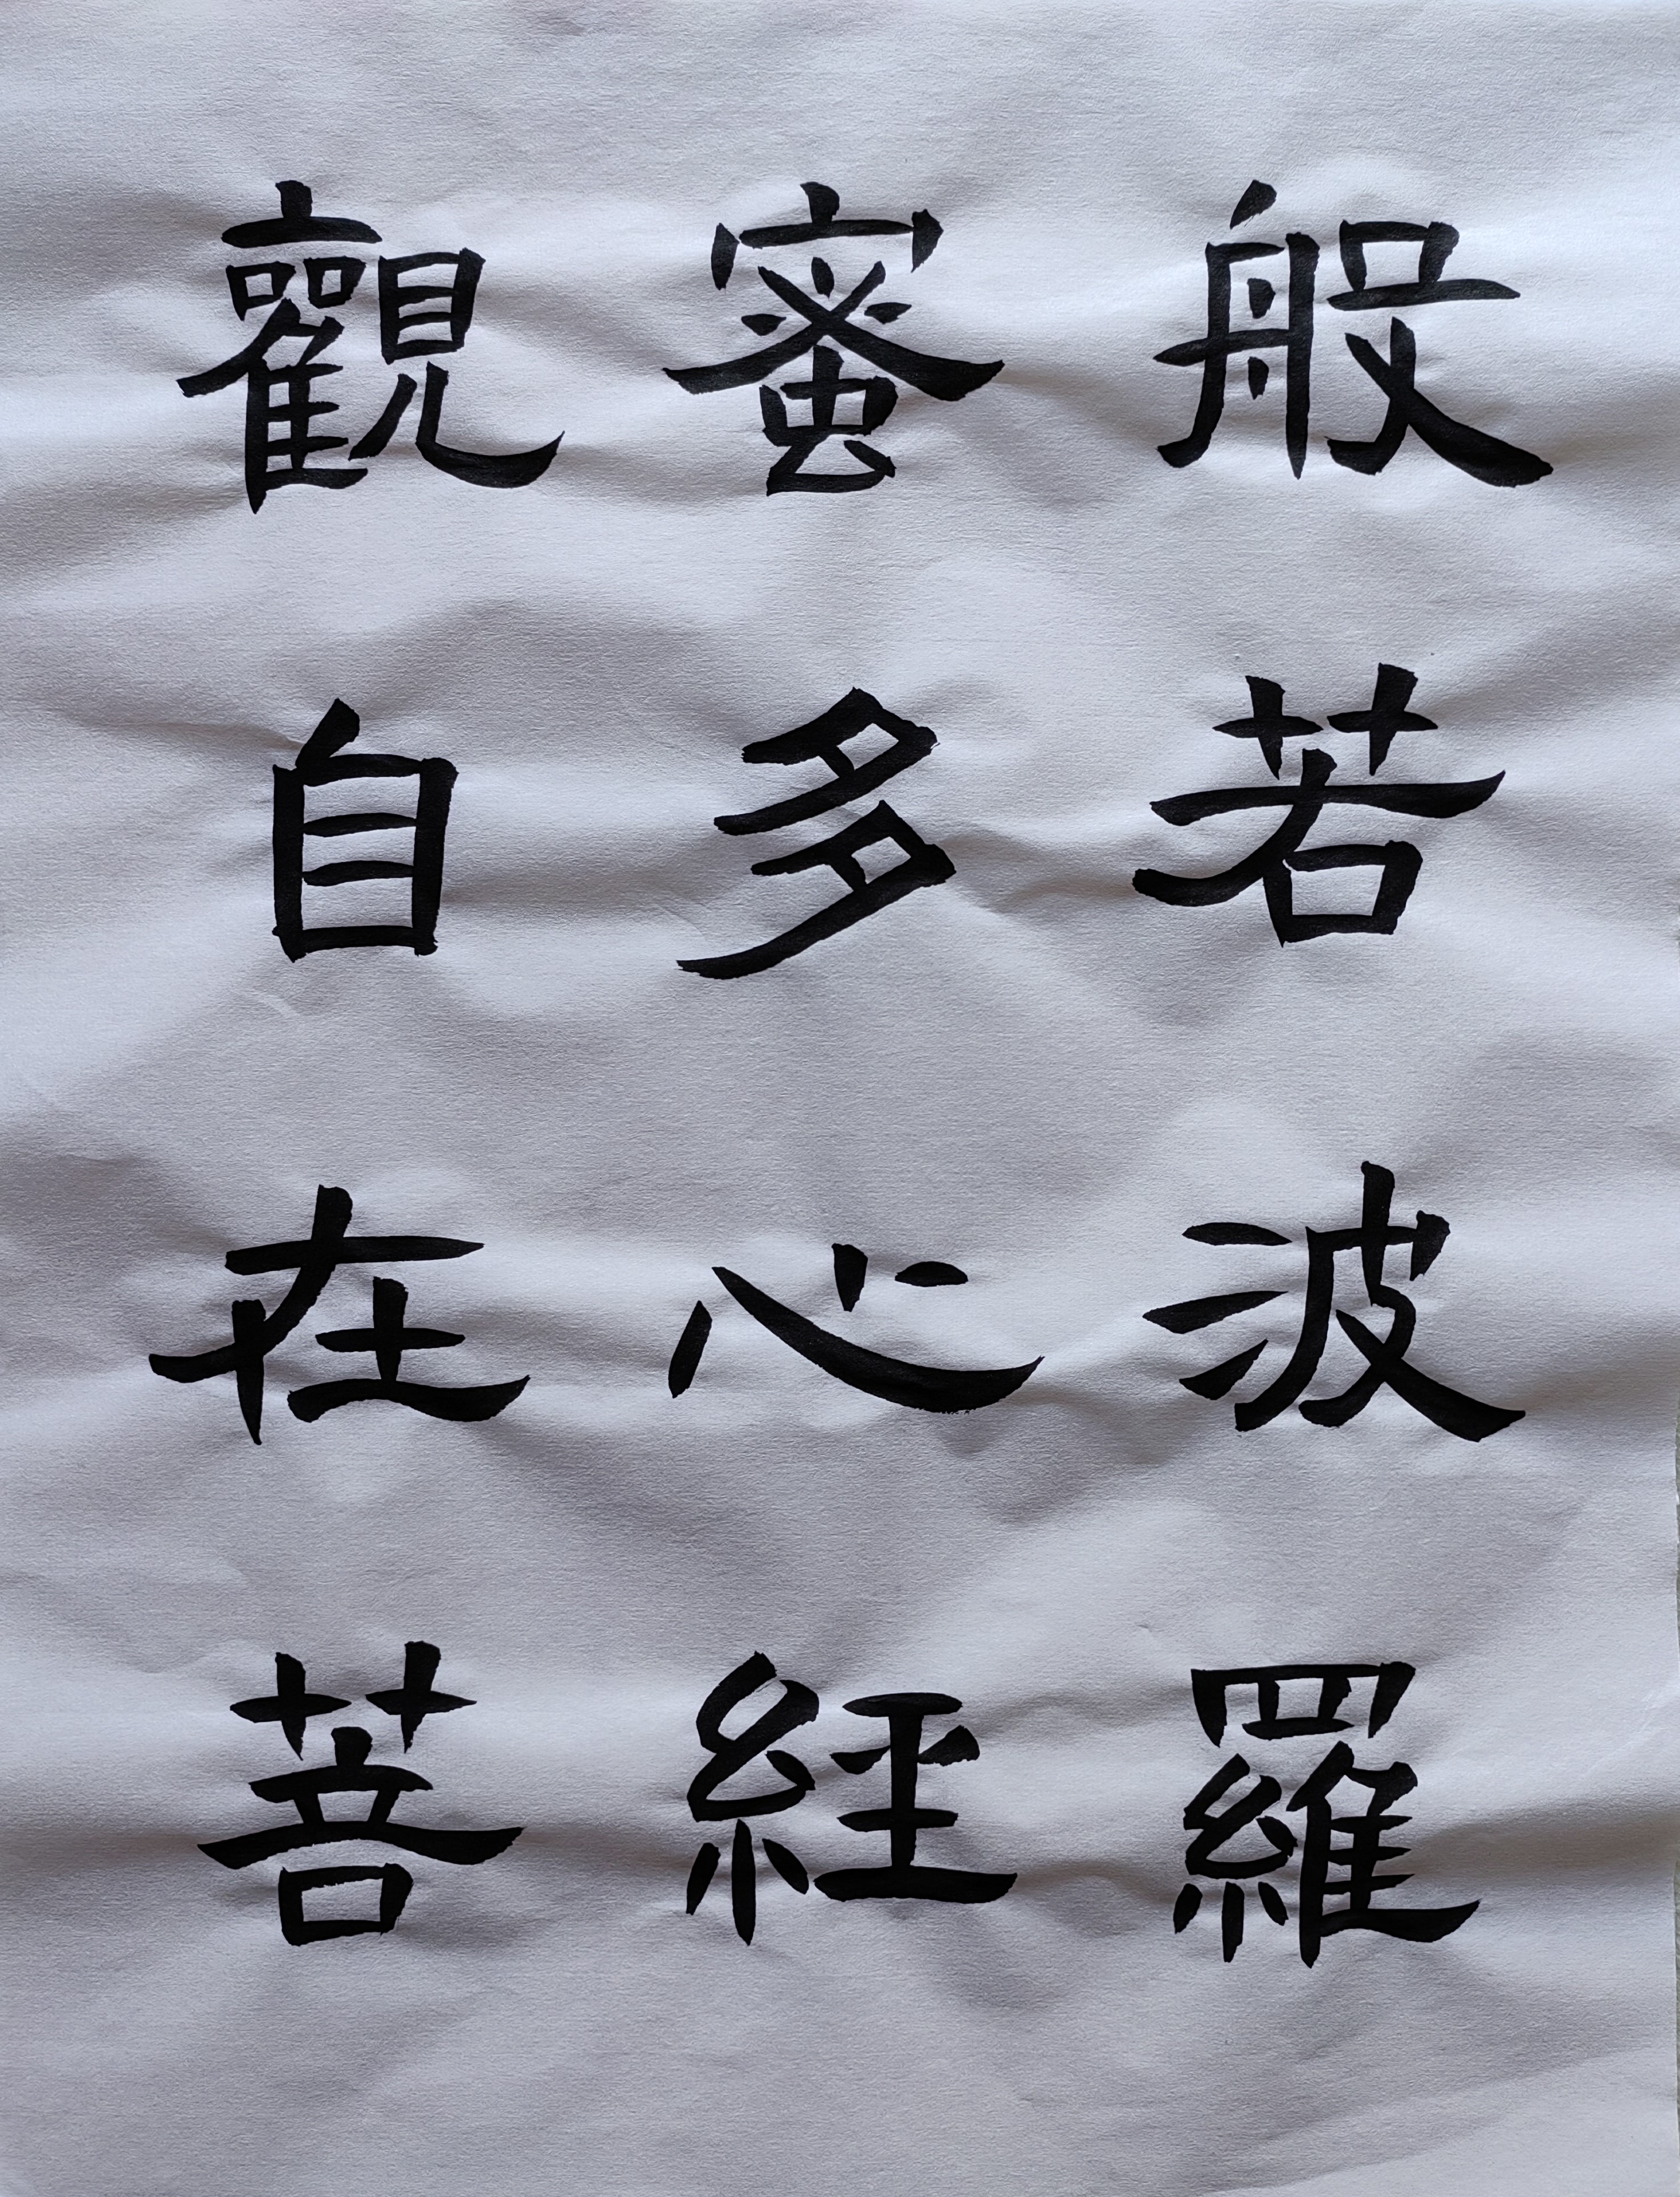 般若波羅
蜜多心經
觀自在菩